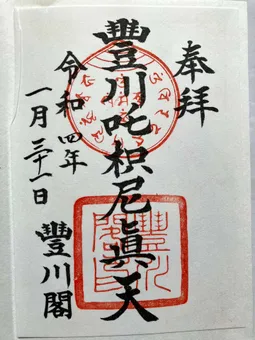 奉拝
豊川吒枳尼眞天
令和四年
一月三十一日
豐川閣